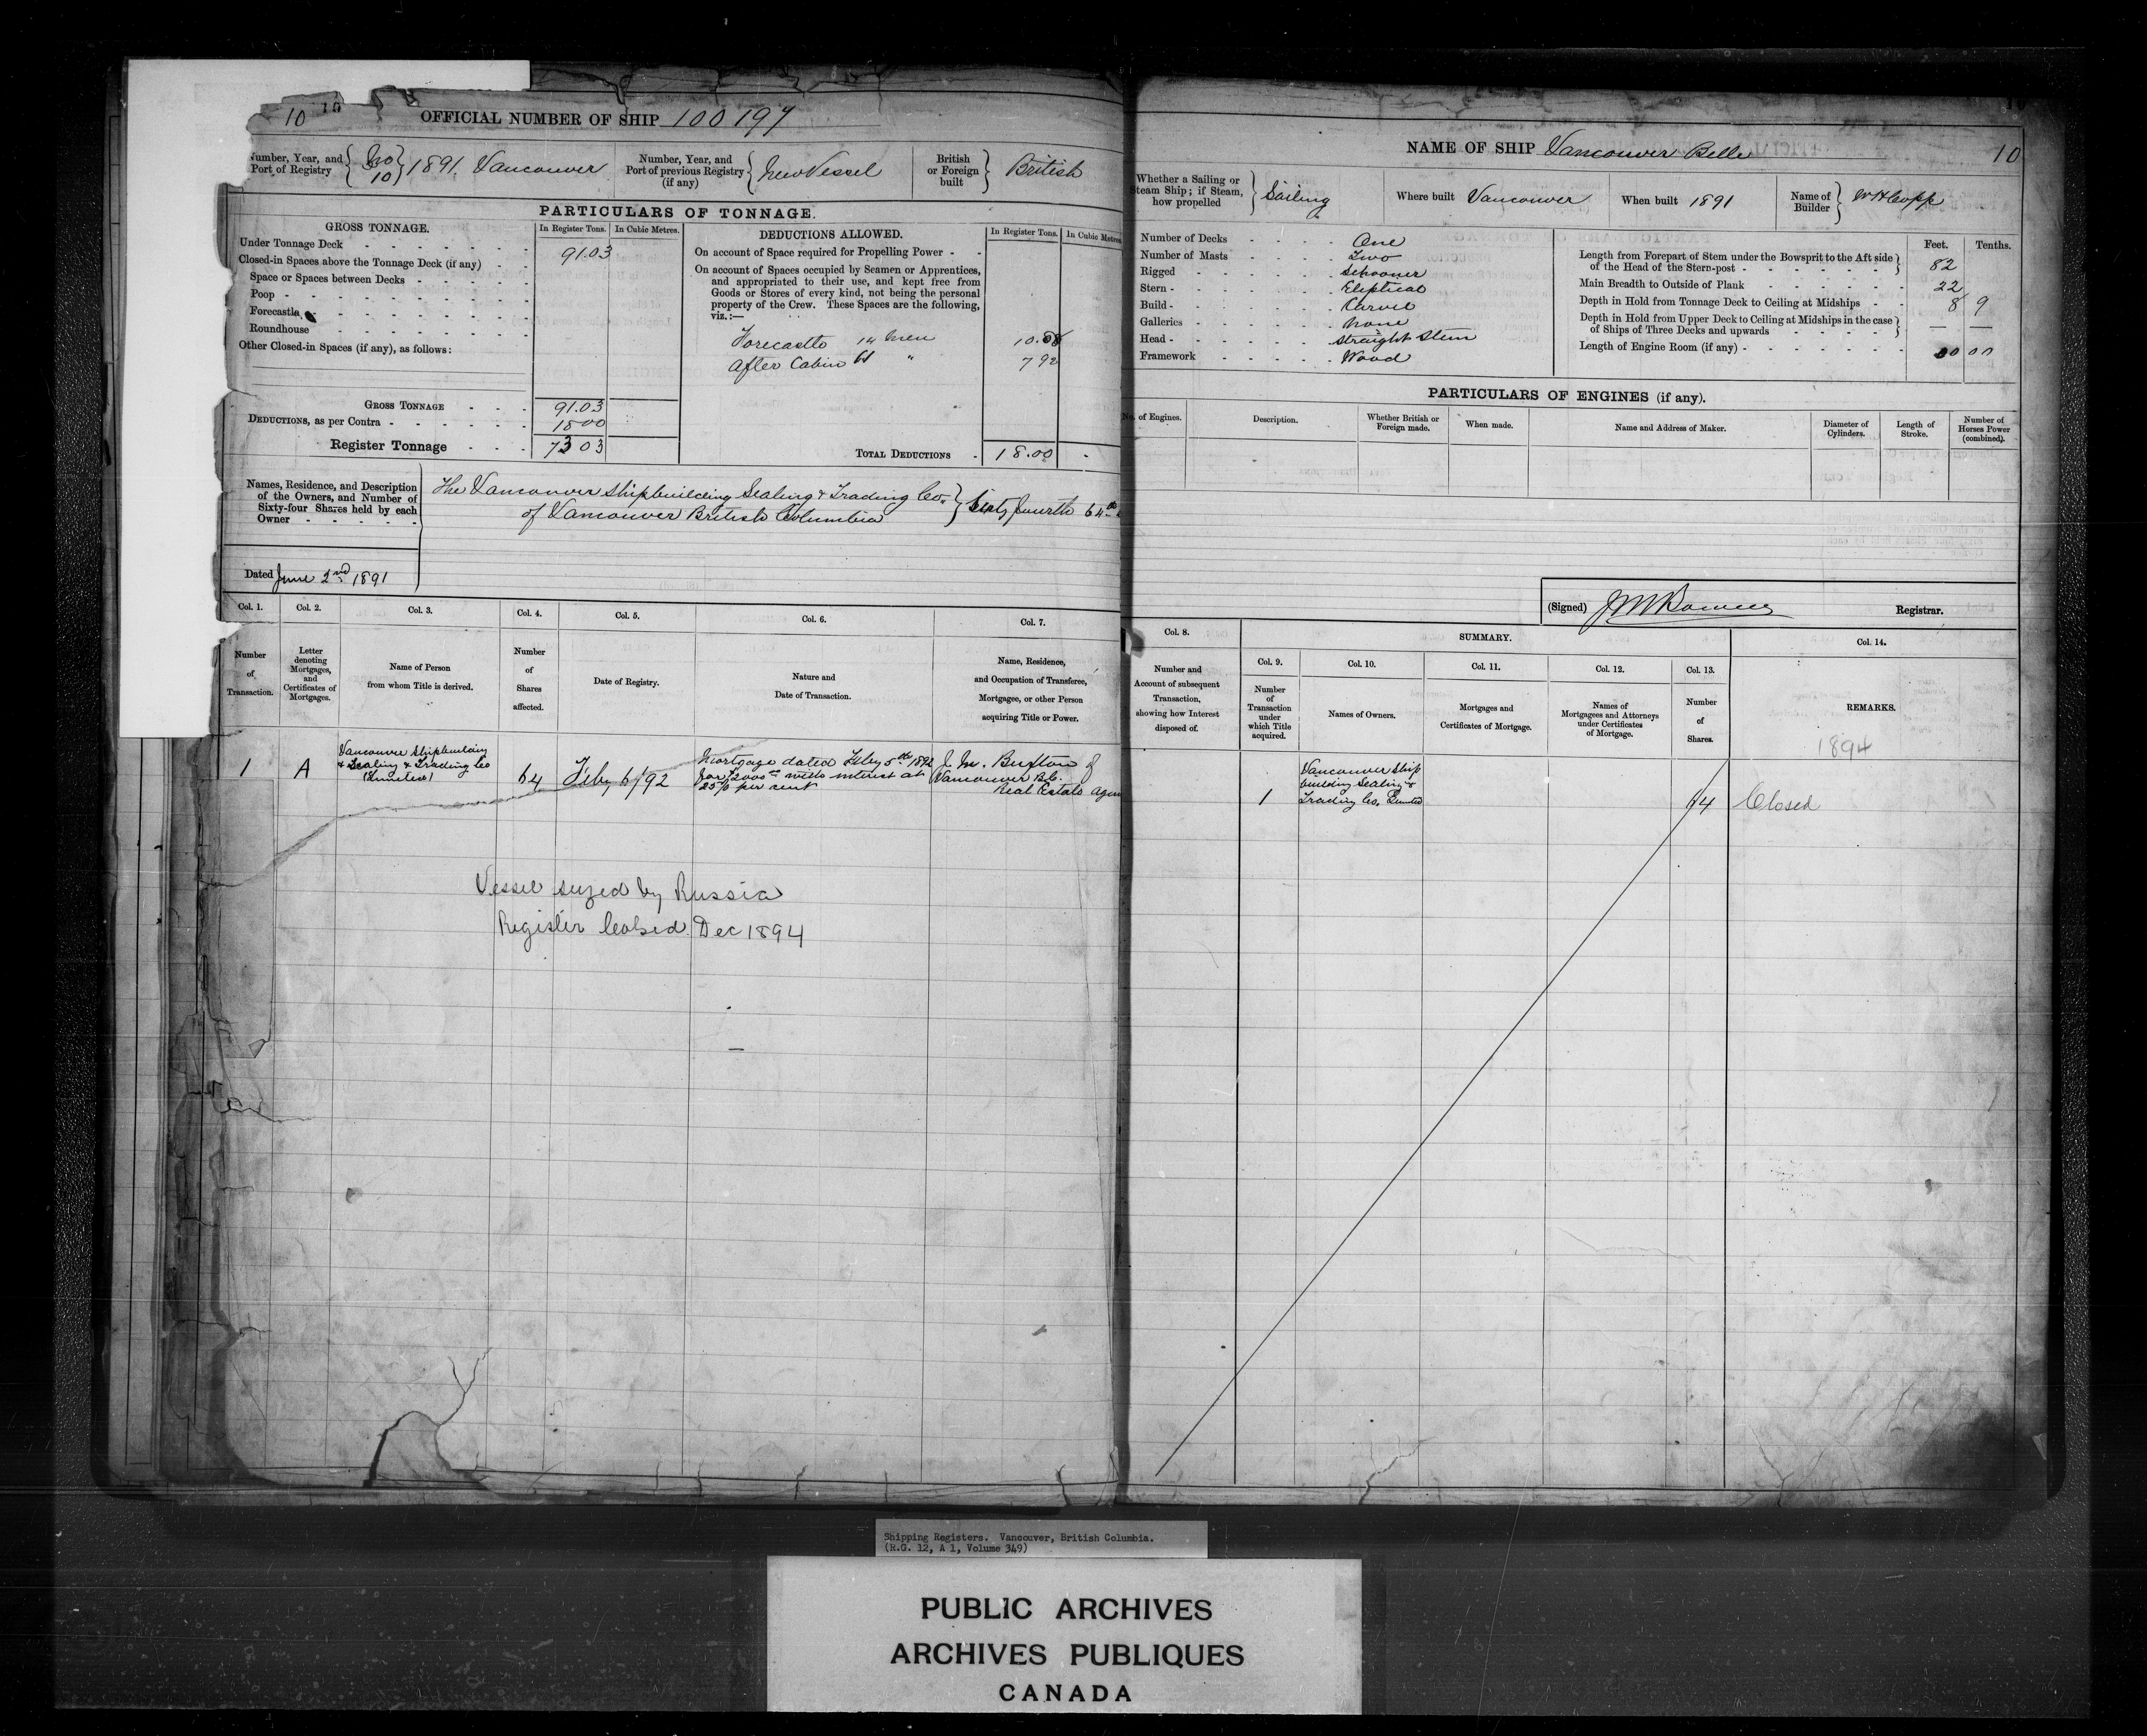 10 10
OFFICIAL NUMBER OF SHIP 100197
Number, Year, and Port of Registry { No 10 } 1891. Vancouver
Number, Year, and Port of previous Registry (if any) { New Vessel
British or Foreign built } British
PARTICULARS OF TONNAGE.
GROSS TONNAGE. In Register Tons. In Cubic Metres.
Under Tonnage Deck 91.03
Closed-in Spaces above the Tonnage Deck (if any)
Space or Spaces between Decks
Poop
Forecastle
Roundhouse
Other Closed-in Spaces (if any), as follows:
GROSS TONNAGE 91.03
DEDUCTIONS, as per Contra 18 00
Register Tonnage 73 03
DEDUCTIONS ALLOWED. In Register Tons. In Cubic Metres
On account of Space required for Propelling Power
On account of Spaces occupied by Seamen or Apprentices,
and appropriated to their use, and kept free from
Goods or Stores of every kind, not being the personal
property of the Crew. These Spaces are the following,
viz.:—
Forecastle 14 men 10.08
After Cabin " 7 92
TOTAL DEDUCTIONS 18.00
Names, Residence, and Description
of the Owners, and Number of
Sixty-four Shares held by each
Owner
The Vancouver Shipbuilding Sealing & Trading Co.
of Vancouver British Columbia } Sixty fourth 64th
Dated June 2nd 1891
Col. 1. Col. 2. Col. 3. Col. 4. Col. 5. Col. 6. Col. 7.
Number of Transaction.
Letter denoting Mortgages, and Certificates of Mortgages.
Name of Person from whom Title is derived.
Number of Shares affected.
Date of Registry.
Nature and Date of Transaction.
Name, Residence, and Occupation of Transferee, Mortgagee, or other Person acquiring Title or Power.
1
A
Vancouver Shipbuilding
& Sealing & Trading Co
(Limited)
64
Feby 6/92
Mortgage dated Feby 5th 1892
for $2000 with interest at
25% per cent
J. M. Buxton of
Vancouver B.C.
Real Estate Agen
Vessel seized by Russia
Register Colsed Dec 1894
NAME OF SHIP Vancouver Belle 10
Whether a Sailing or Steam Ship; if Steam, how propelled } Sailing
Where built Vancouver
When built 1891
Name of Builder } W H Copp
Number of Decks One
Number of Masts Two
Rigged Schooner
Stern Eliptical
Build Carvel
Galleries None
Head straight Stem
Framework Wood
Feet. Tenths.
Length from Forepart of Stem under the Bowsprit to the Aft side
of the Head of the Stern-post 82
Main Breadth to Outside of Plank 22
Depth in Hold from Tonnage Deck to Ceiling at Midships 8 9
Depth in Hold from Upper Deck to Ceiling at Midships in the case
of Ships of Three Decks and upwards — —
Length of Engine Room (if any) 00 00
PARTICULARS OF ENGINES (if any).
No. of Engines.
Description.
Whether British or Foreign made.
When made.
Name and Address of Maker.
Diameter of Cylinders.
Length of Stroke.
Number of Horses Power (combined).
(Signed) Registrar.
Col. 8. SUMMARY. Col. 14.
Col. 9. Col. 10. Col. 11. Col. 12. Col. 13.
Number and Account of subsequent Transaction, showing how Interest disposed of.
Number of Transaction under which Title acquired.
Names of Owners.
Mortgages and Certificates of Mortgage.
Names of Mortgagees and Attorneys under Certificates of Mortgage.
Number of Shares.
REMARKS.
1894
1
Vancouver Ship
building Sealing &
Trading Co. Limited
64
Closed
Shipping Registers. Vancouver, British Columbia.
(R.G. 12, A 1, Volume 349)
PUBLIC ARCHIVES
ARCHIVES PUBLIQUES
CANADA